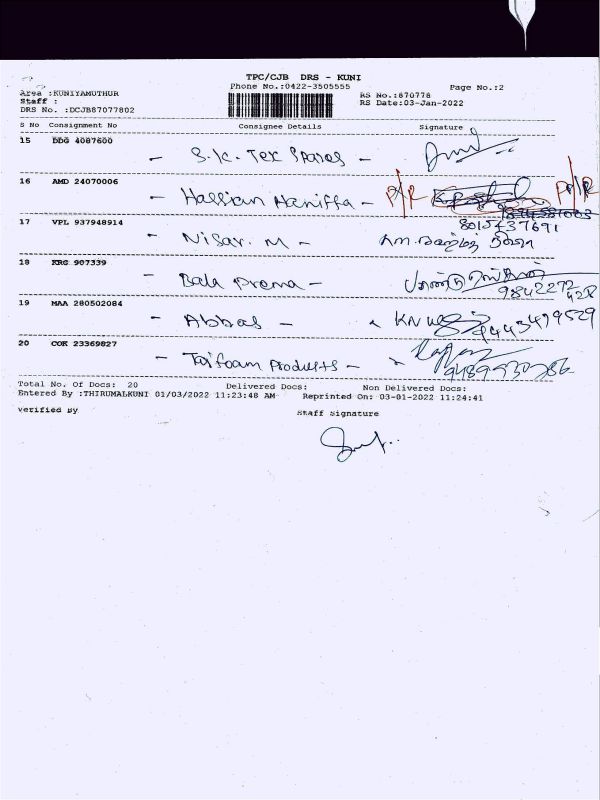 TPC/CJB DRS - KUNI
Phone No.:0422-3505555 Page No.:2
Area :KUNIYAMUTHUR RS No.:870778
Staff : RS Date:03-Jan-2022
DRS No. :DCJB87077802
S No Consignment No Consignee Details Signature
15 DDG 4087600
- S.K. Tex Spares -
16 AMD 24070006
- Hassian Haniffa - P/R P/R
17 VPL 937948914 8015437691
- Nisar. M -
18 KRG 907339
- Bala Prema -
9842272428
19 MAA 280502084
- Abbas - 9443479529
20 COK 23369827
- Taifoam Products - 9489930286
Total No. Of Docs: 20 Delivered Docs: Non Delivered Docs:
Entered By :THIRUMALKUNI 01/03/2022 11:23:48 AM Reprinted On: 03-01-2022 11:24:41
Verified By Staff Signature